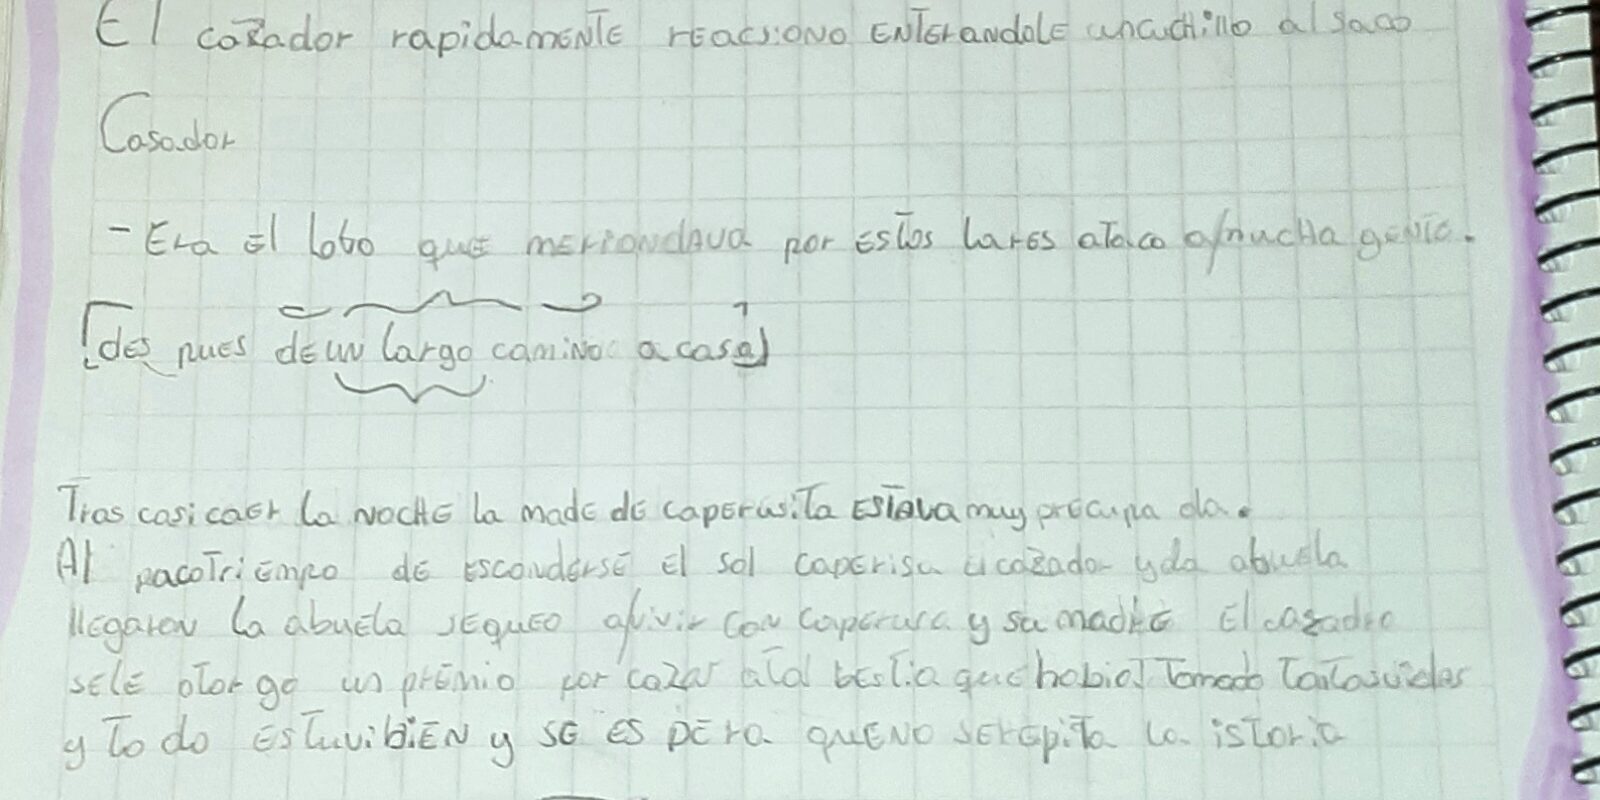 El cazador rapidamente reacsiono enterandole uncuchillo al saco
Casador
- Era el lobo que merrondava por estos lares ataco a mucha gente.
[des pues de un largo camino a casa]
Tras casi caer la noche la made de caperusita estava muy precupa da.
Al pacotriempo de esconderse el sol caperisa el cazador y la abuela
llegaron la abuela sequeo a vivir con caperusa y su madre El cazadro
sele otorgo un premio por cazar ala bestia que habia tomado tantasvidas
y to do estuvibien y se es pera que no serepita la istoria